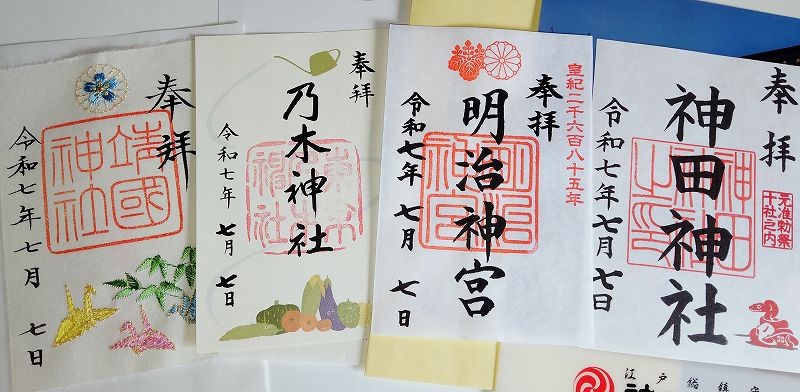 奉拝
靖國
神社
令和七年 七月 七日
奉拝
乃木神社
令和七年 七月 七日
皇紀二千六百八十五年
奉拝
明治神宮
令和七年 七月 七日
奉拝
神田神社
元准勅祭
十社之内
令和七年 七月 七日
江戸総鎮守